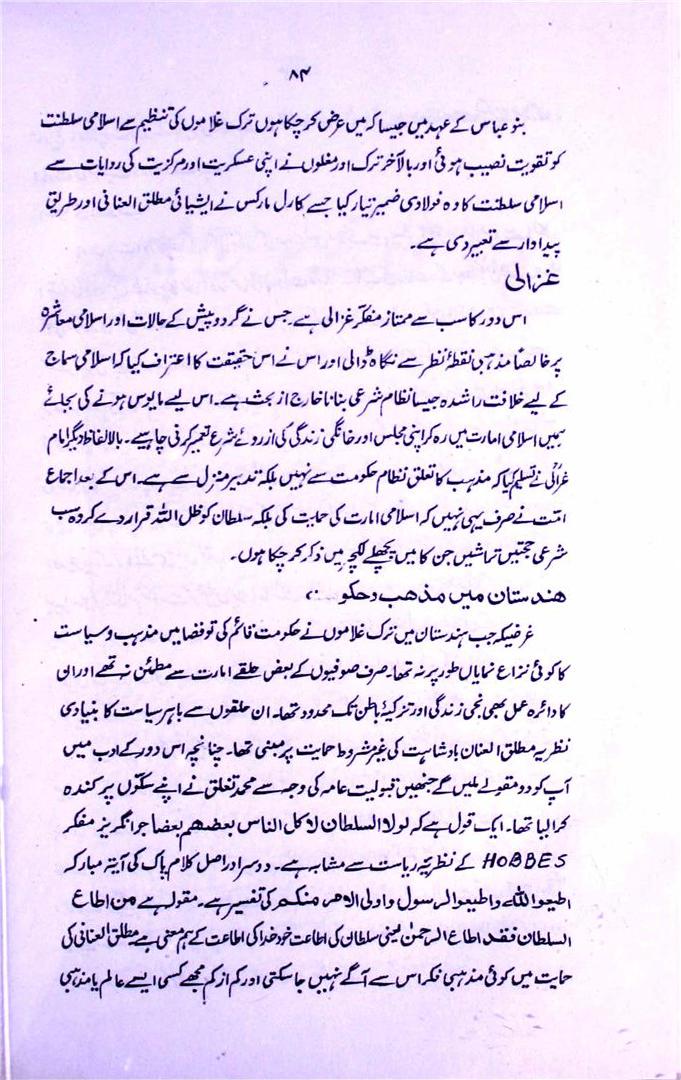 ۸۴
بنو عباس کے عہد میں جیسا کہ میں عرض کر چکا ہوں ترک غلاموں کی تنظیم سے اسلامی سلطنت
کو تقویت نصیب ہوئی اور بالآخر ترک اور مغلوں نے اپنی عسکریت اور مرکزیت کی روایات سے
اسلامی سلطنت کا وہ فولادی ضمیر تیار کیا جسے کارل مارکس نے ایشیائی مطلق العنانی اور طریقِ
پیداوار سے تعبیر دی ہے۔
غزالی
اس دور کا سب سے ممتاز مفکر غزالی ہے جس نے گرد و پیش کے حالات اور اسلامی معاشرہ
پر خالصاً مذہبی نقطۂ نظر سے نگاہ ڈالی اور اس نے اس حقیقت کا اعتراف کیا کہ اسلامی سماج
کے لیے خلافت راشدہ جیسا نظام شرعی بنانا خارج از بحث ہے۔ اس لیے مایوس ہونے کی بجائے
ہمیں اسلامی امارت میں رہ کر اپنی مجلس اور خانگی زندگی کی از روئے شرع تعمیر کرنی چاہیے۔ بالالفاظ دیگر امام
غزالیؒ نے تسلیم کیا کہ مذہب کا تعلق نظام حکومت سے نہیں بلکہ تدبیر منزل سے ہے۔ اس کے بعد اجماع
امت نے صرف یہی نہیں کہ اسلامی امارت کی حمایت کی بلکہ سلطان کو ظل اللہ قرار دے کر وہ سب
شرعی حجتیں تراشیں جن کا میں پچھلے لکچر میں ذکر کر چکا ہوں۔
ہندستان میں مذہب و حکو
غرضیکہ جب ہندستان میں ترک غلاموں نے حکومت قائم کی تو فضا میں مذہب و سیاست
کا کوئی نزاع نمایاں طور پر نہ تھا۔ صرف صوفیوں کے بعض حلقے امارت سے مطمئن نہ تھے اور ان
کا دائرہ عمل بھی نجی زندگی اور تزکیۂ باطن تک محدود تھا۔ ان حلقوں سے باہر سیاست کا بنیادی
نظریہ مطلق العنان بادشاہت کی غیر مشروط حمایت پر مبنی تھا۔ چنانچہ اس دور کے ادب میں
آپ کو دو مقولے ملیں گے جنھیں قبولیت عامہ کی وجہ سے محمد تغلق نے اپنے سکّوں پر کندہ
کرا لیا تھا۔ ایک قول ہے کہ لولا السلطان لاکل الناس بعضھم بعضا جو انگریز مفکر
HOBBES کے نظریۂ ریاست سے مشابہ ہے۔ دوسرا دراصل کلام پاک کی آیۃ مبارکہ
اطیعو اللہ و اطیعو الرسول و اولی الامر منکم کی تفسیر ہے۔ مقولہ ہے من اطاع
السلطان فقد اطاع الرحمن یعنی سلطان کی اطاعت خود خدا کی اطاعت کے ہم معنی ہے مطلق العنانی کی
حمایت میں کوئی مذہبی فکر اس سے آگے نہیں جا سکتی اور کم از کم مجھے کسی ایسے عالم یا مذہبی